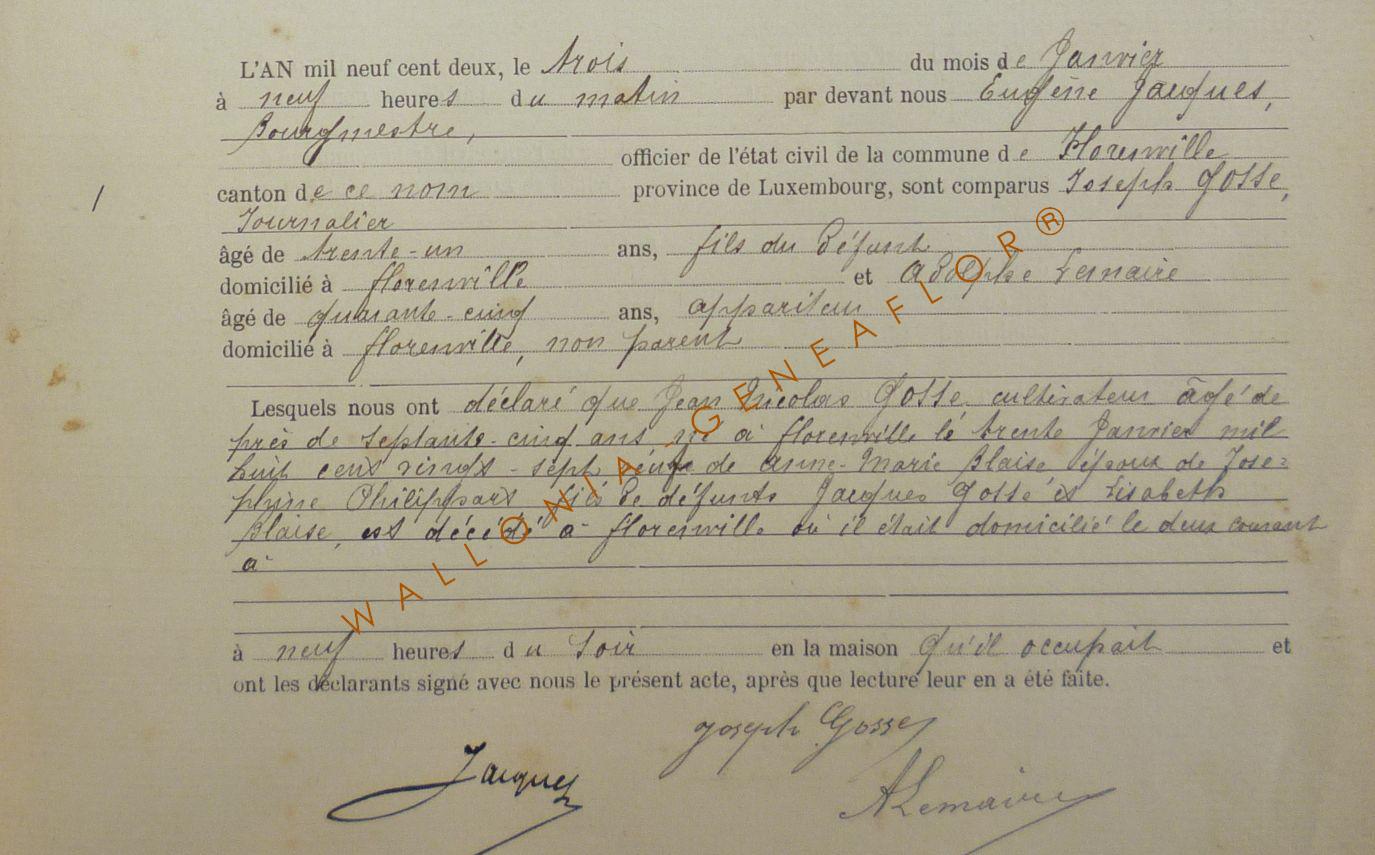 L'AN mil neuf cent deux, le trois du mois de Janvier
à neuf heures du matin par devant nous Eugène Jacques,
Bourgmestre,
officier de l'état civil de la commune de Florenville
canton de ce nom province de Luxembourg, sont comparus Joseph Gosse,
Journalier
âgé de trente-un ans, fils du défunt
domicilié à florenville et Adolphe Lemaire
âgé de quarante-cinq ans, appariteur
domicilié à florenville, non parent
Lesquels nous ont déclaré que Jean Nicolas Gosse cultivateur âgé de
près de septante-cinq ans né à florenville le trente Janvier mil
huit cent vingt-sept veuf de Anne-Marie Blaise époux de Jose=
phine Philippart fils de défunts Jacques Gosse et Lisabeth
Blaise, est décédé à florenville où il était domicilié le deux courant
à
à neuf heures du soir en la maison qu'il occupait et
ont les déclarants signé avec nous le présent acte, après que lecture leur en a été faite.
Joseph Gosse
Jacques
ALemaire
WALLONIA-GENEAFLOR®